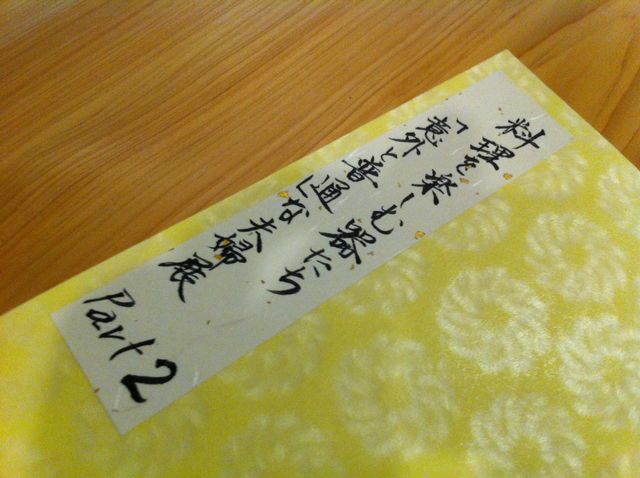 料理を楽しむ器たち
「意外と普通」な夫婦展
Part 2